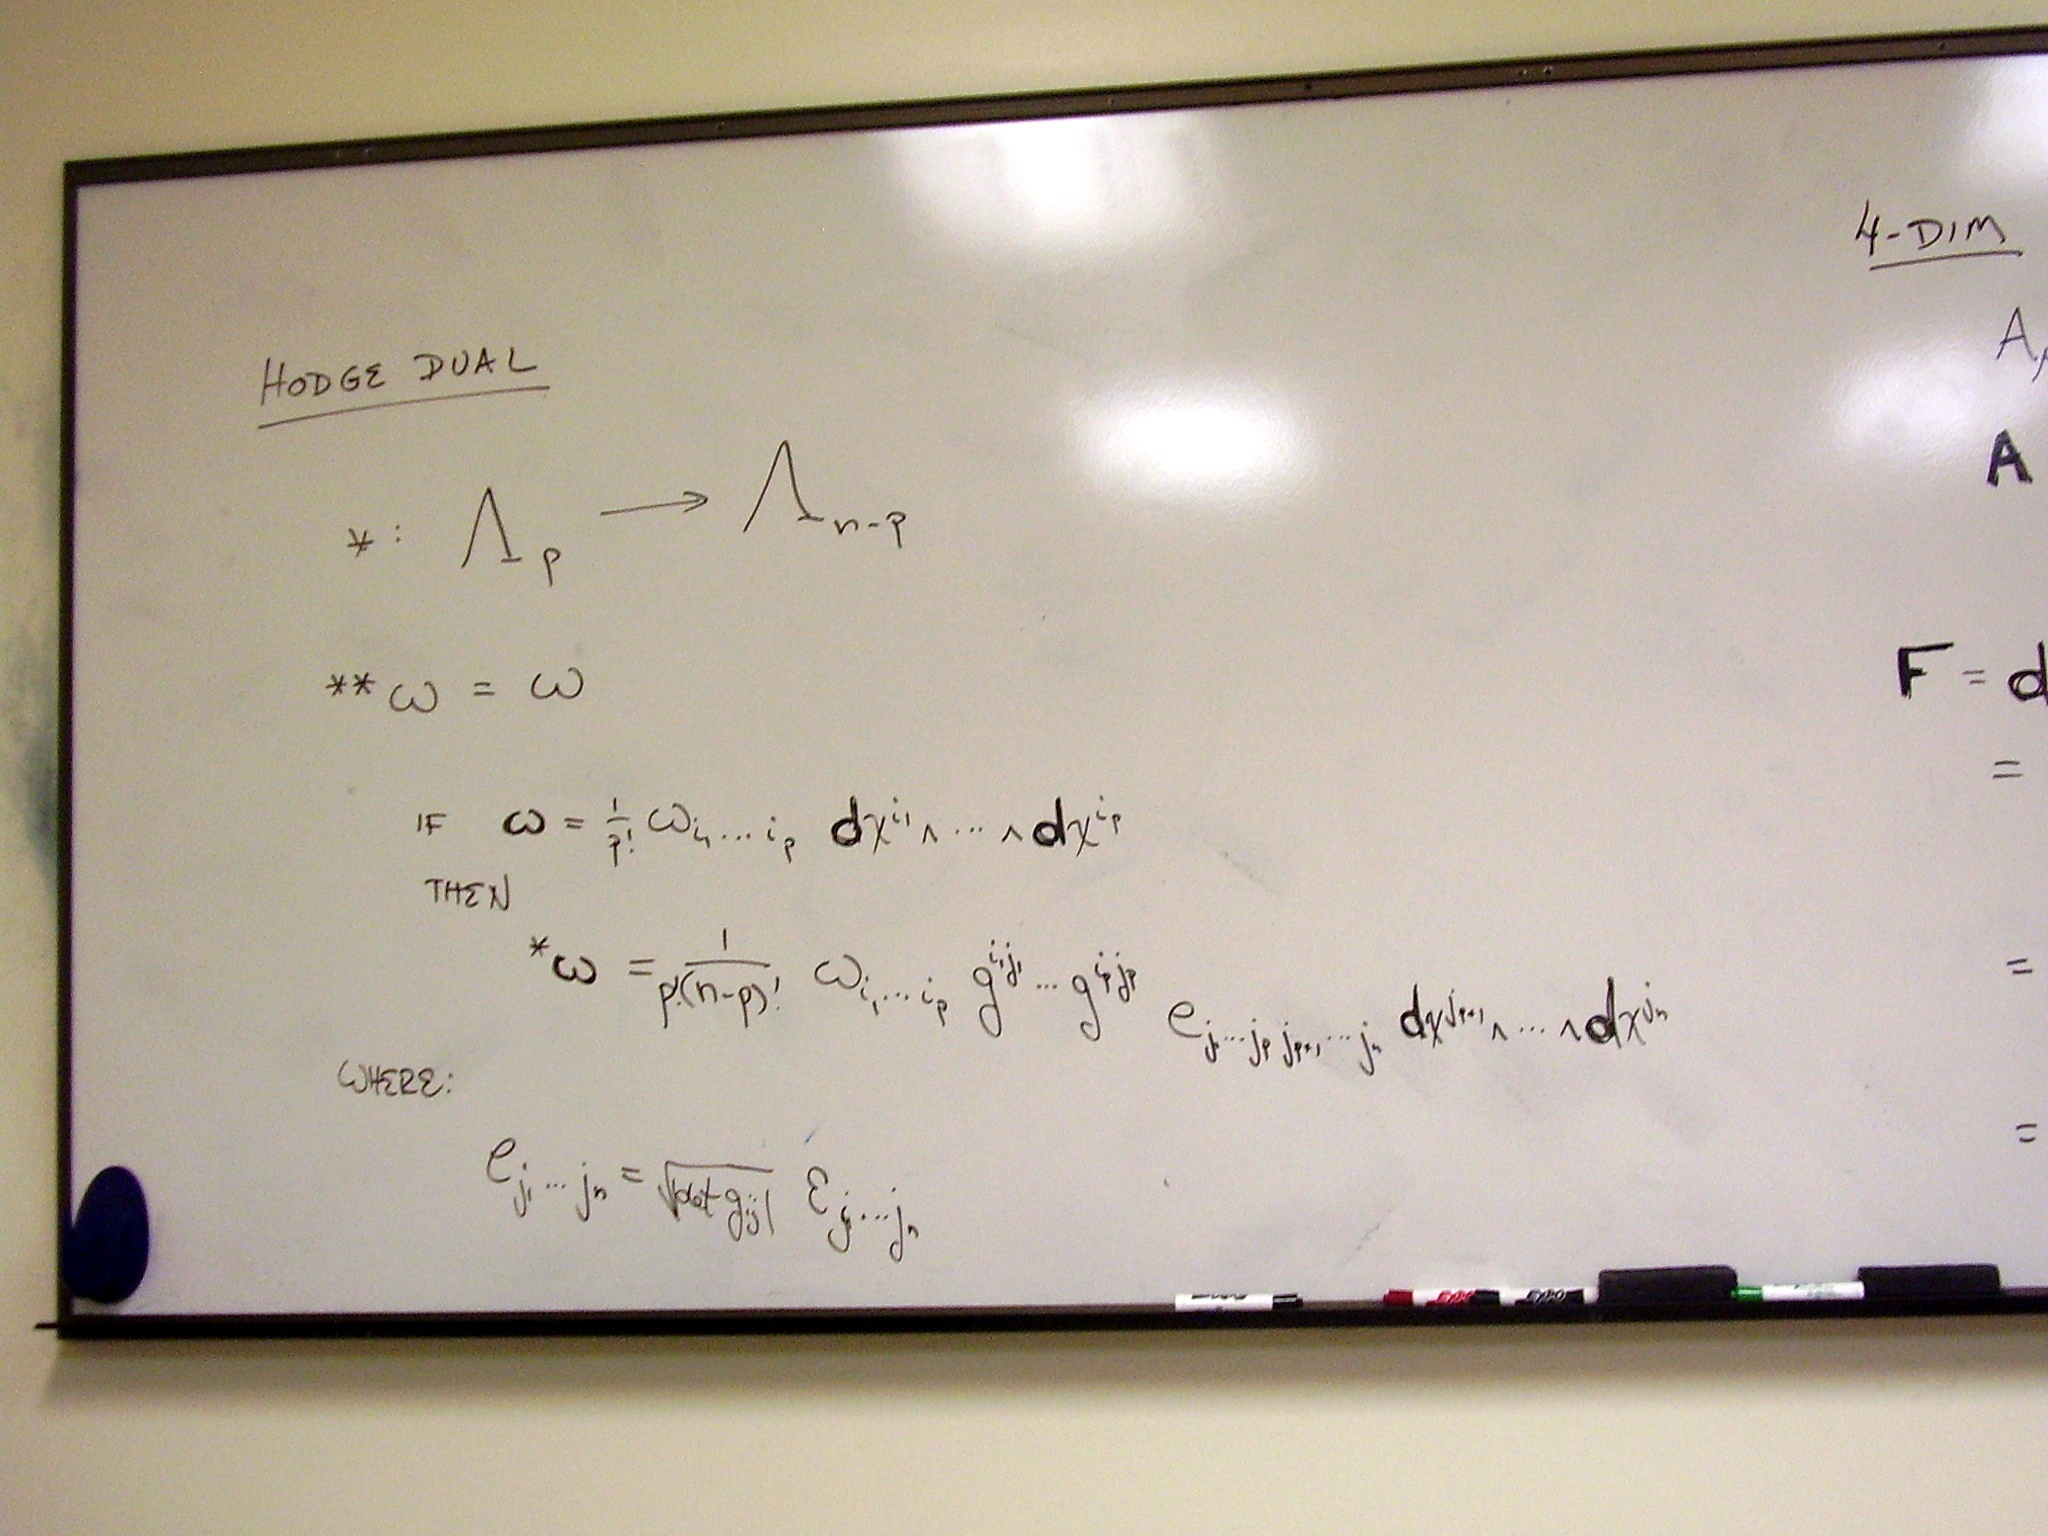 HODGE DUAL
* : Λ_p → Λ_{n-p}
**ω = ω
IF ω = 1/p! ω_{i₁...i_p} dx^{i₁} ∧ ... ∧ dx^{i_p}
THEN
*ω = 1/(p!(n-p)!) ω_{i₁...i_p} g^{i₁j₁} ... g^{i_pj_p} e_{j₁...j_p j_{p+1}...j_n} dx^{j_{p+1}} ∧ ... ∧ dx^{j_n}
WHERE:
e_{j₁...j_n} = √|det g_{ij}| ε_{j₁...j_n}
4-DIM
A
A
F = d
=
=
=
EXPO
EXPO